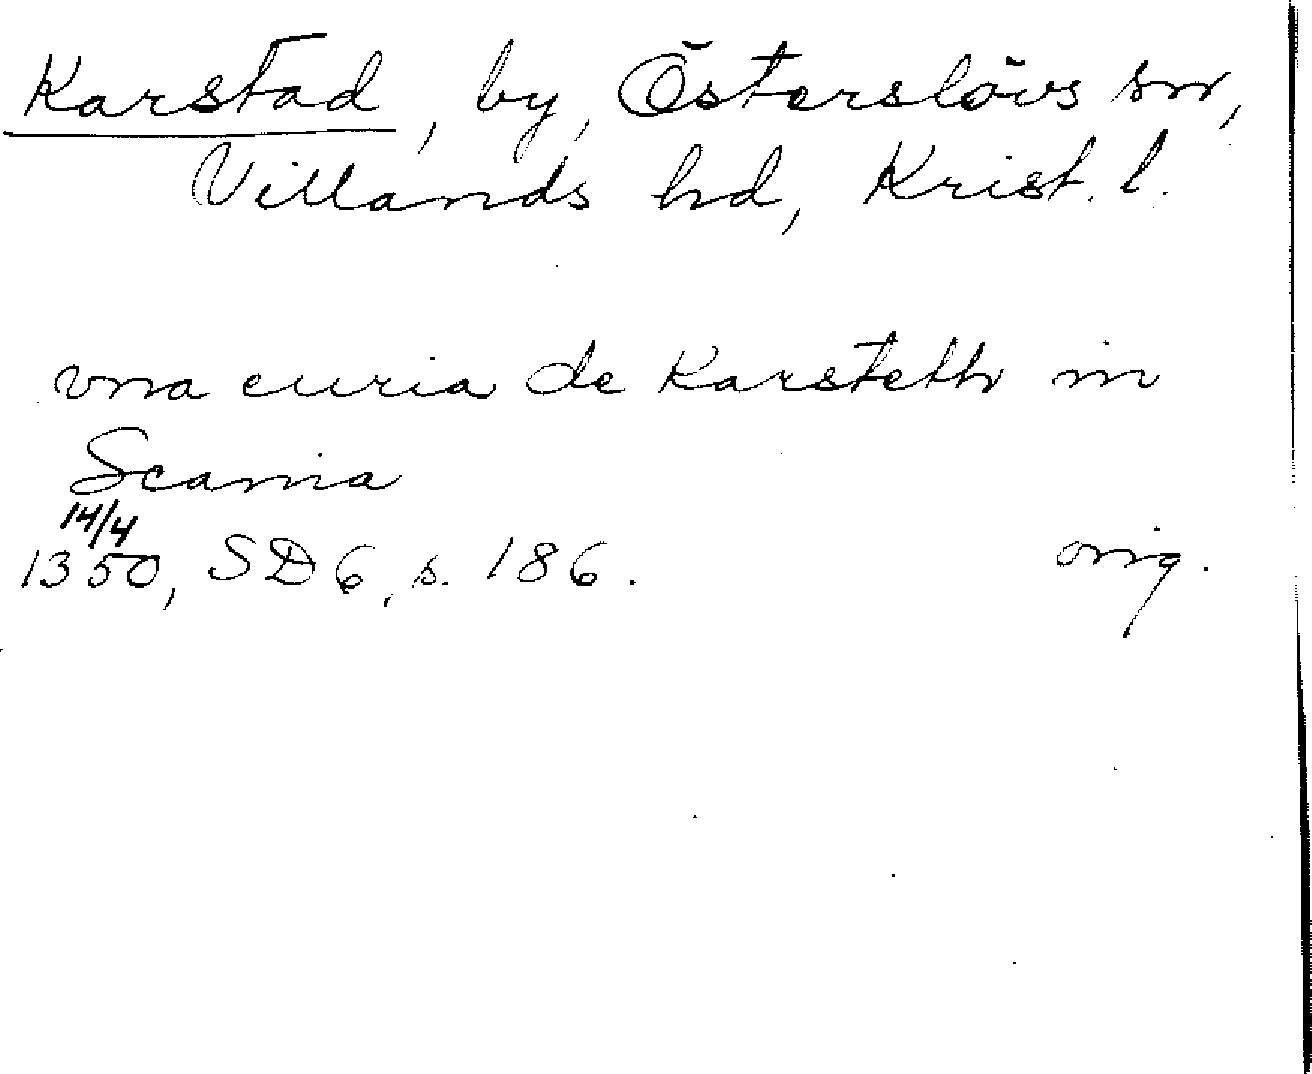 Karstad, by, Österslövs sn,
Villands hd, Krist. l.
vna curia de Karsteth in
Scania
14/4
1350, SD 6, s. 186. orig.